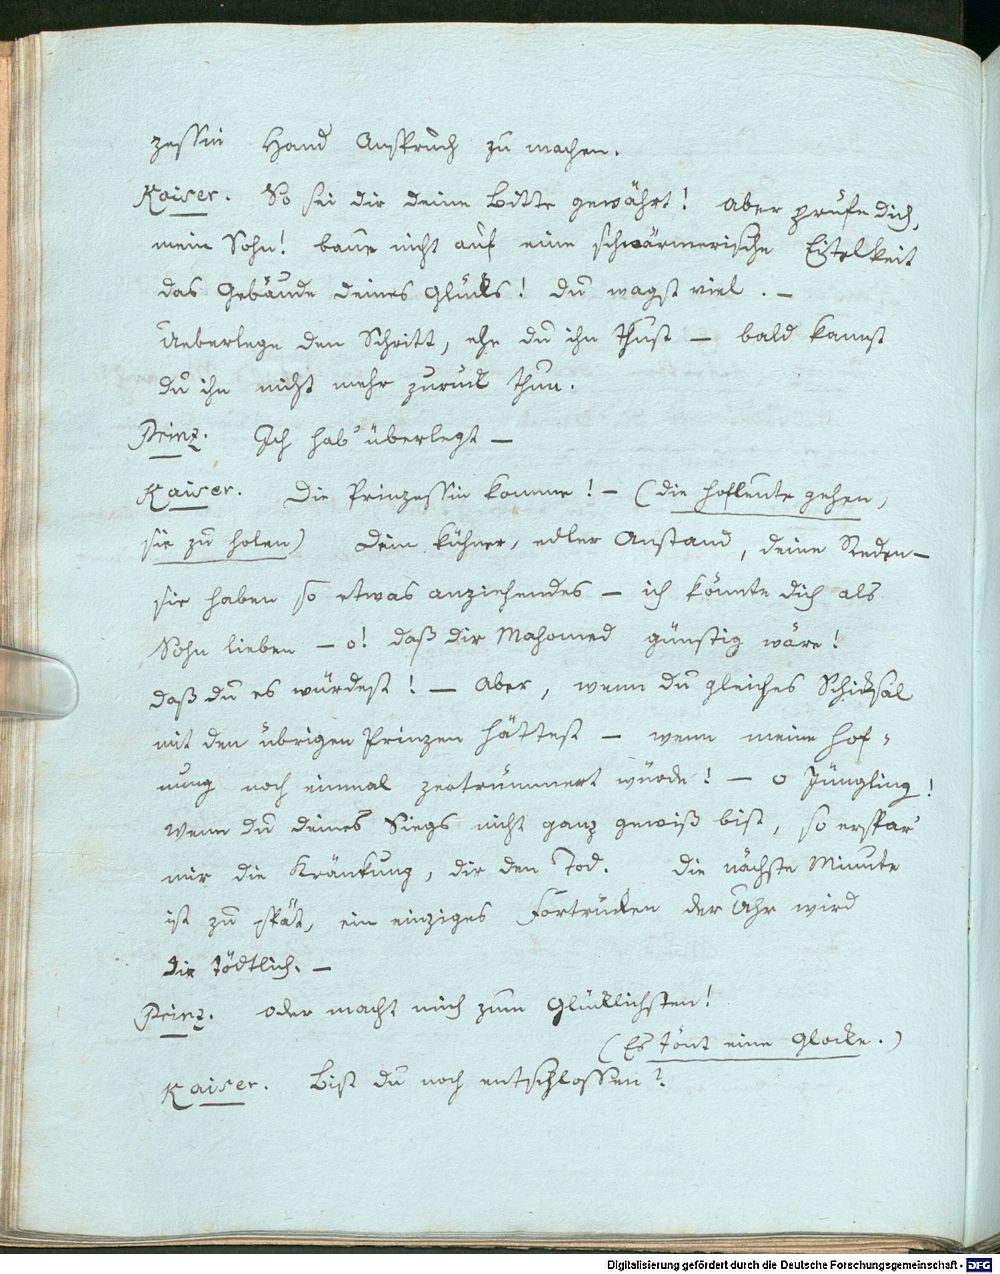 zessin Hand Anspruch zu machen.
Kaiser. So sei dir deine Bitte gewährt! aber prüfe dich,
mein Sohn! baue nicht auf eine schwärmerische Eitelkeit
das Gebäude deines Glücks! du wagst viel. —
Ueberlege den Schritt, ehe du ihn thust — bald kannst
du ihn nicht mehr zurück thun.
Prinz. Ich hab' überlegt —
Kaiser. Die Prinzessin komme! — (die Hofleute gehen,
sie zu holen) Dein kühner, edler Anstand, deine Reden —
sie haben so etwas anziehendes — ich könnte dich als
Sohn lieben — o! daß dir Mahomed günstig wäre!
daß du es würdest! — Aber, wenn du gleiches Schicksal
mit den übrigen Prinzen hättest — wenn meine Hof-
nung noch einmal zertrümmert würde! — o Jüngling!
Wenn du deines Siegs nicht ganz gewiß bist, so erspar'
mir die Kränkung, dir den Tod. Die nächste Minute
ist zu spät, ein einziges Fortrücken der Uhr wird
dir tödtlich. —
Prinz. oder macht mich zum Glücklichsten!
(Es tönt eine Glocke.)
Kaiser. Bist du noch entschlossen?
Digitalisierung gefördert durch die Deutsche Forschungsgemeinschaft - DFG